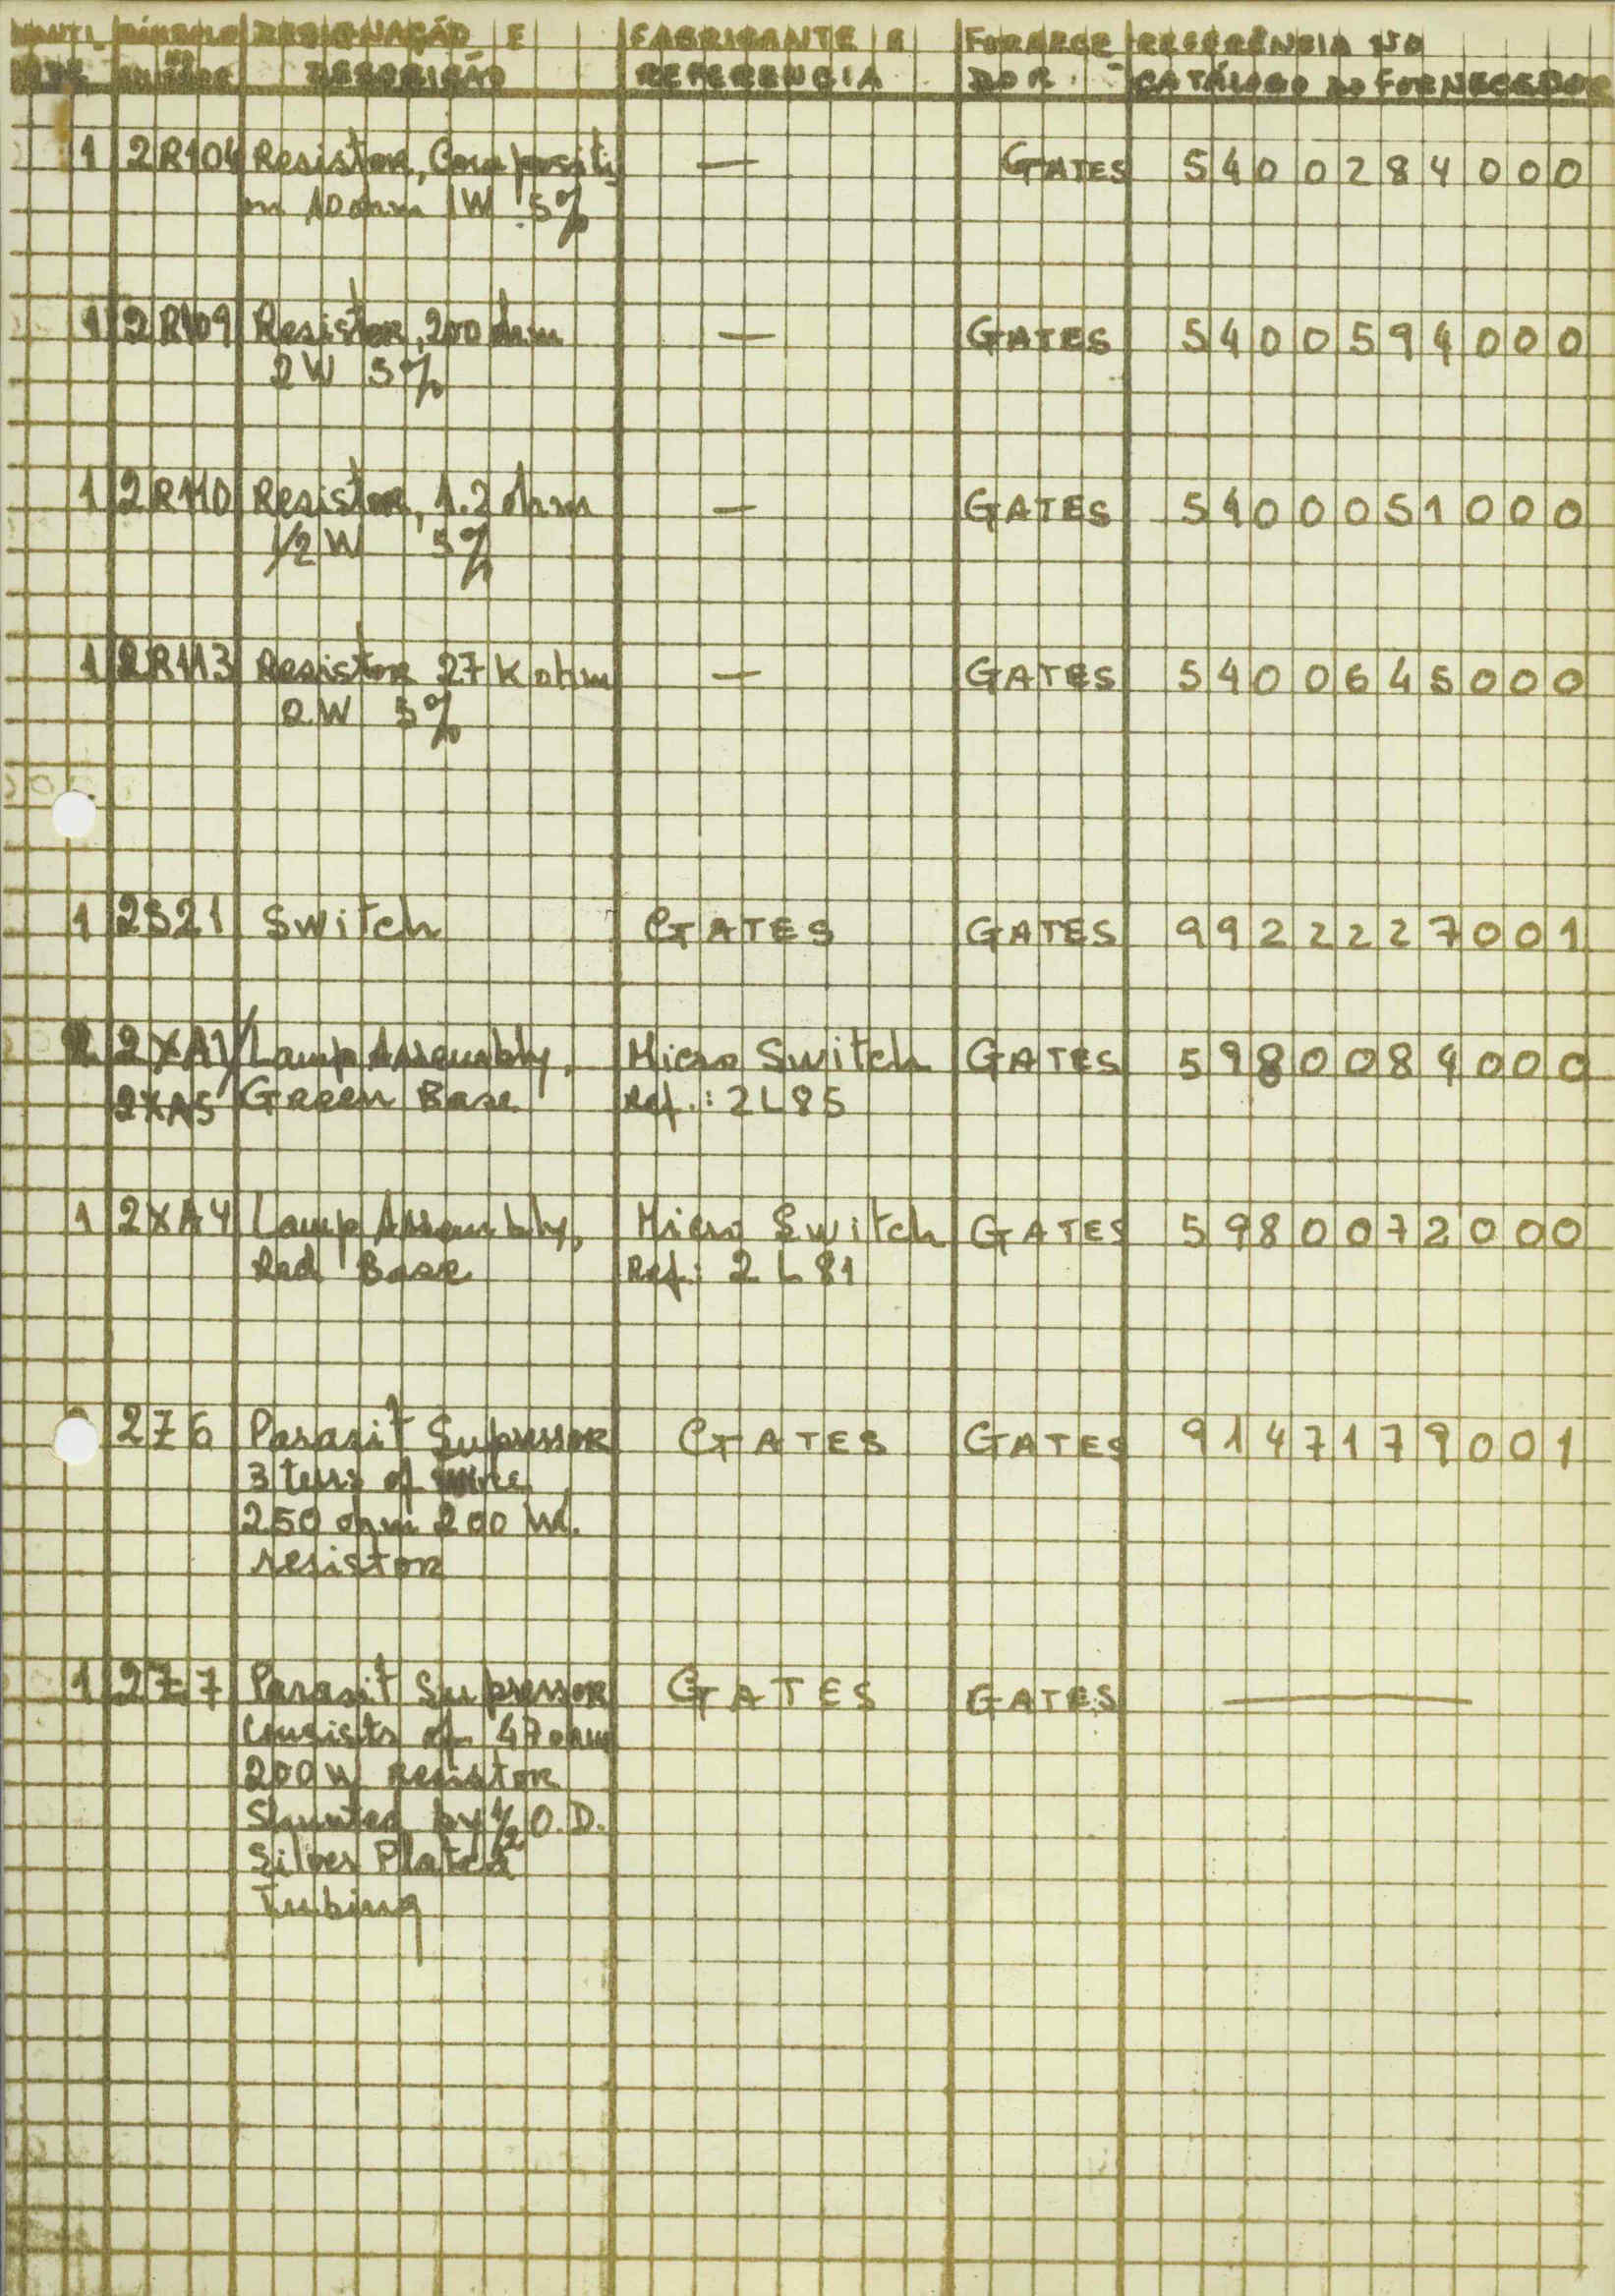 QUANTI_ SÍMBOLO DESIGNAÇÃO E FABRICANTE E FORNECE_ REFERÊNCIA NO
DADE DESCRIÇÃO REFERENCIA DOR CATÁLOGO DO FORNECEDOR
1 2R104 Resistor, Compositi — GATES 5400284000
on 10 ohm 1W 5%
1 2R109 Resistor, 200 ohm — GATES 5400594000
2W 5%
1 2R110 Resistor, 1.2 ohm — GATES 5400051000
1/2 W 5%
1 2R113 Resistor 27 K ohm — GATES 5400645000
2W 5%
1 2S21 Switch GATES GATES 9922227001
2 2XA1/ Lamp Assembly, Micro Switch GATES 5980084000
2XA5 Green Base Ref.: 2L85
1 2XA4 Lamp Assembly, Micro Switch GATES 5980072000
Red Base Ref.: 2L81
2Z6 Parasit Supressor GATES GATES 9147179001
3 of
250 ohm 200 W.
resistor
1 2Z7 Parasit Supressor GATES GATES —
Consists of 47 ohm
200W resistor
Shunted by 1/2 O.D.
Silver Plated
Tubing